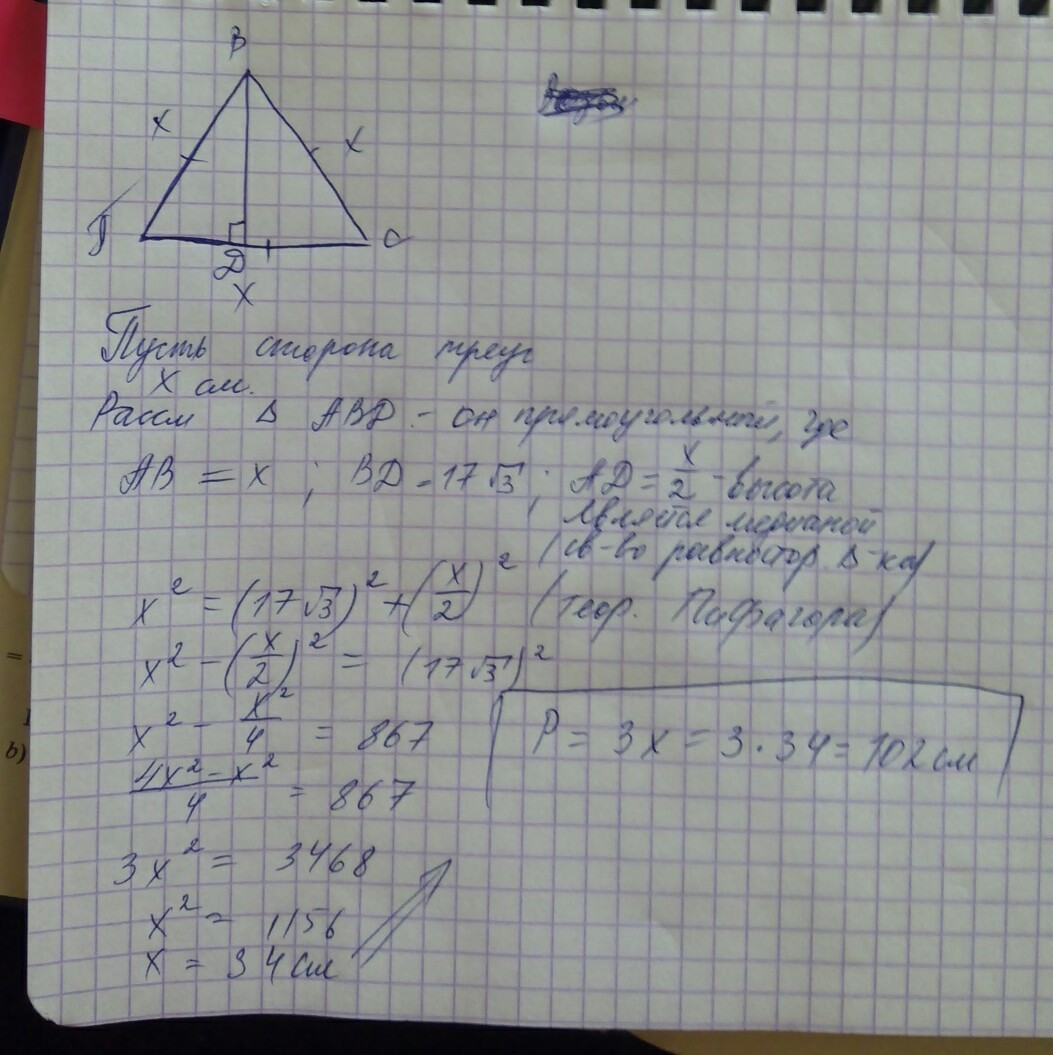 B
x
x
C
D
x
Пусть сторона треуг
x см.
Рассм Δ ABD - он прямоугольный, где
AB = x ; BD = 17√3 ; AD = x/2 - высота
является медианой
(св-во равностор. Δ-ка)
x² = (17√3)² + (x/2)² (теор. Пифагора)
x² - (x/2)² = (17√3)²
x² - x²/4 = 867
(4x² - x²)/4 = 867
3x² = 3468
x² = 1156
x = 34 см
P = 3x = 3·34 = 102 см
b)